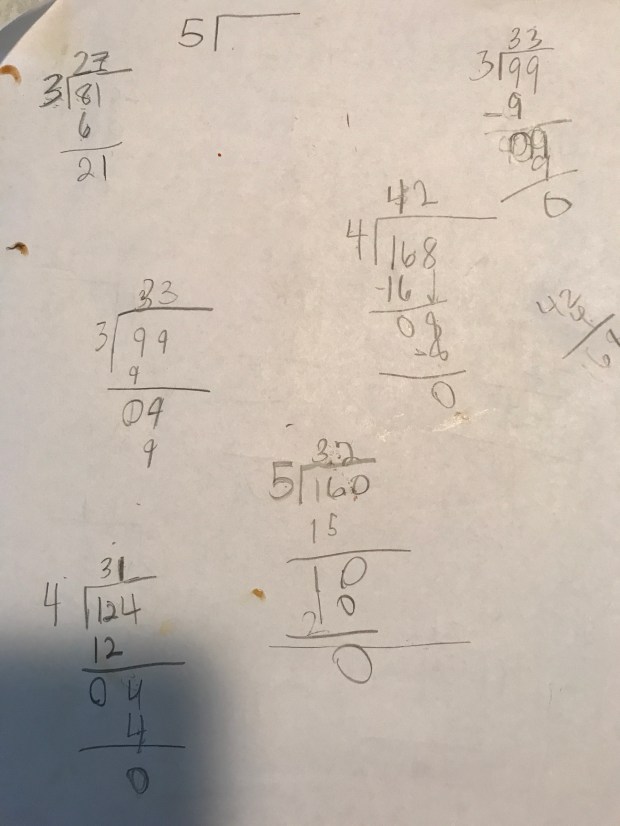 5
27
3 81
6
21
33
3 99
-9
09
9
0
42
4 168
-16
08
-8
0
33
3 99
9
09
9
32
5 160
15
10
10
0
31
4 124
12
04
4
0